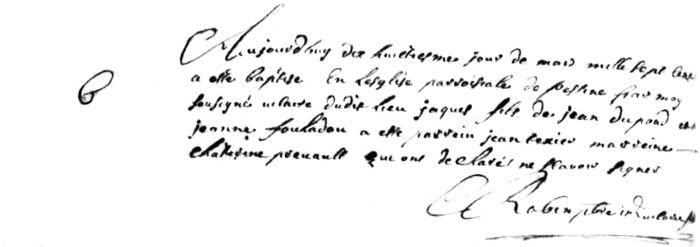 Aujourdhuy dix huictiesme jour de mars mille sept cent
B
a este baptise En Lesglise parroissiale de par moy
sousigné vicaire dudit lieu jaques fils de jean dupond et
jeanne fouladou a este parrein jean texier marreine
Catherine preuault qui ont declarés ne scavoir signer
Robin ptre vicaire